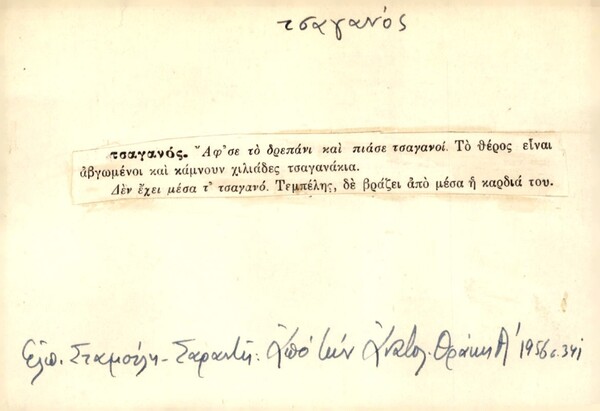 τσαγανός
τσαγανός. Ἄφ'σε τὸ δρεπάνι καὶ πιάσε τσαγανοί. Τὸ θέρος εἶναι
ἀβγωμένοι καὶ κάμνουν χιλιάδες τσαγανάκια.
Δὲν ἔχει μέσα τ' τσαγανό. Τεμπέλης, δὲ βράζει ἀπὸ μέσα ἡ καρδιά του.
Ἐλπ. Σταμούλη - Σαραντῆ: Ἀπὸ τὴν Ἀνατολ. Θράκη Α' 1956 σ. 341